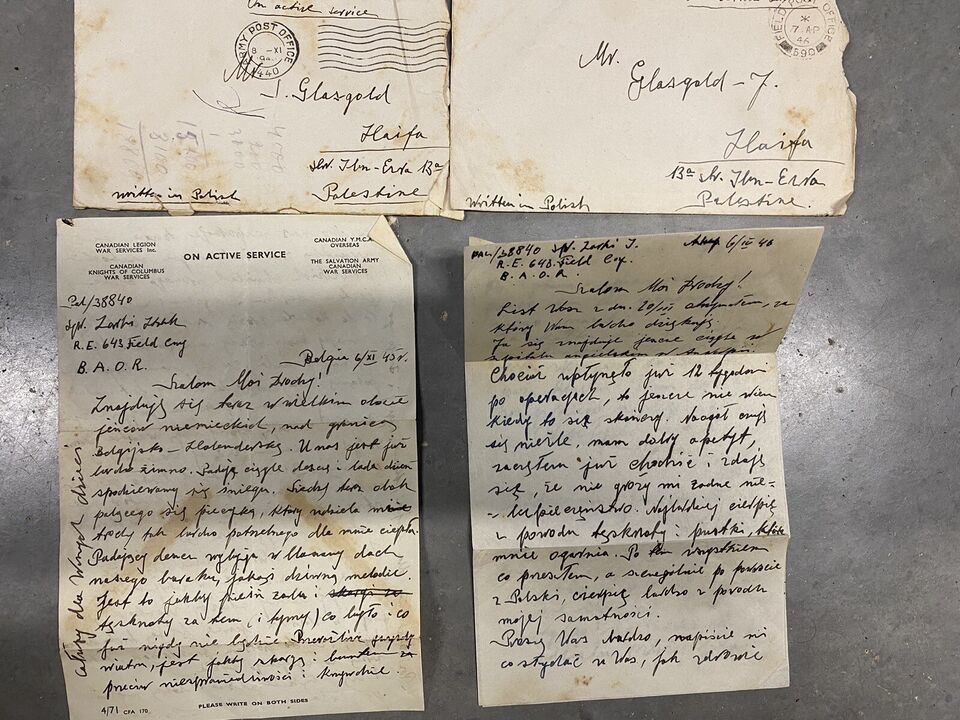 On active service
ARMY POST OFFICE
8 -XI
440
Mr.
J. Glasgold
Haifa
str. Ibn-Ezra 13a
Palestine
written in Polish
FIELD POST OFFICE
7 AP
46
590
Mr.
Glasgold - J.
Haifa
13a str. Ibn-Ezra
Palestine.
written in Polish
CANADIAN LEGION
WAR SERVICES Inc.
CANADIAN
KNIGHTS OF COLUMBUS
WAR SERVICES
ON ACTIVE SERVICE
CANADIAN Y.M.C.A.
OVERSEAS
THE SALVATION ARMY
CANADIAN
WAR SERVICES
Pal/38840
R.E. 643 Field Cny
B.A.O.R.
Belgia 6/XI 45 r.
Szalom Moi Drodzy!
Znajduję się teraz w wielkim obozie
jeńców niemieckich, nad granicą
Belgijsko-Holenderską. U nas jest już
bardzo zimno. Padają ciągle deszcze i lada dzień
spodziewamy się śniegu. Siedzę teraz obok
palącego się piecyka, który udziela
trochę tak bardzo potrzebnego dla mnie ciepła.
Padający deszcz wybija w blaszany dach
naszego baraku, jakąś dziwną melodię.
Jest to jakby pieśń żalu i
tęsknoty za tem, co było i co
już nigdy nie będzie.
wiatru, jest jakby skargą i
przeciw niesprawiedliwości i krzywdzie.
całusy dla Waszych dzieci
4/71 CFA 170
PLEASE WRITE ON BOTH SIDES
PAL/38840 Spr. Zarki I.
R.E. 643 Field Coy.
B.A.O.R.
6/IV 46
Szalom Moi Drodzy!
List Wasz z dn. 20/III otrzymałem, za
który Wam bardzo dziękuję.
Ja się znajduję jeszcze ciągle w
szpitalu angielskim w
Chociaż upłynęło już 12 tygodni
po operacjach, to jeszcze nie wiem
kiedy to się skończy. Naogół czuję
się nieźle, mam dobry apetyt,
zacząłem już chodzić i zdaje
się, że nie grozi mi żadne nie-
-bezpieczeństwo. Najbardziej cierpię
z powodu tęsknoty i pustki, która
mnie ogarnia. Po tem wszystkiem
co przeszłem, a szczególnie po powrocie
z Polski, cierpię bardzo z powodu
mojej samotności.
Proszę Was bardzo, napiszcie mi
co słychać u Was, jak zdrowie